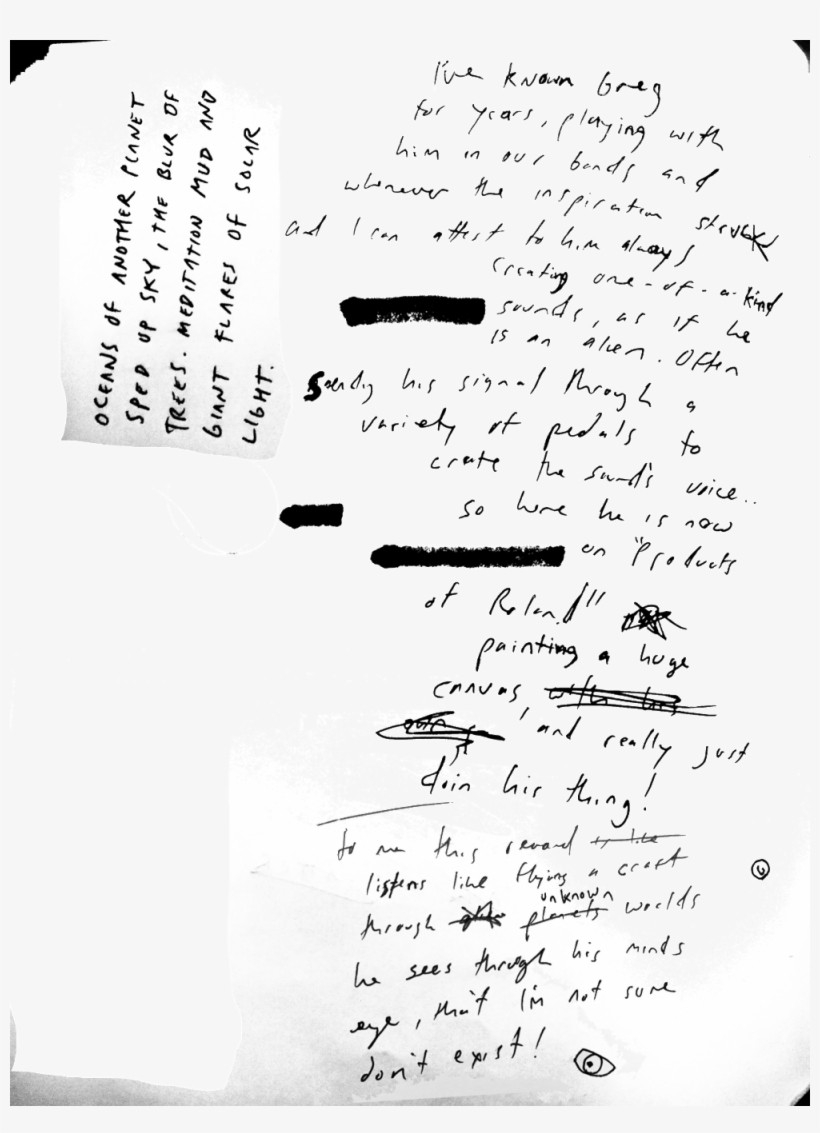 OCEANS OF ANOTHER PLANET
SPED UP SKY, THE BLUR OF
TREES. MEDITATION MUD AND
GIANT FLARES OF SOLAR
LIGHT.
I've known Greg
for years, playing with
him in our bands and
whenever the inspiration struck
and I can attest to him always
creating one-of-a-kind
sounds, as if he
is an alien. Often
Sending his signal through a
variety of pedals to
create the sound's voice..
so here he is now
on "Products
of Roland"
painting a huge
canvas, with his
own, and really just
doin his thing!
to me this record is like
listens like flying a craft
unknown
through planets worlds
he sees through his minds
eye, that I'm not sure
don't exist!